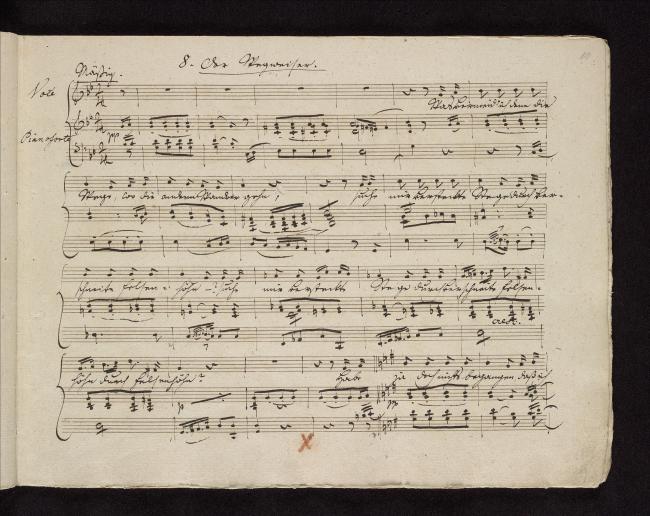 8. Der Wegweiser.
Mäßig.
Voce
Pianoforte
Was vermeid' ich denn die
Wege, wo die andern Wandrer gehn,
suche mir versteckte Stege durch ver-
schneite Felsen-
höhn
suche mir versteckte Stege durch verschneite Felsen-
cresc.
höhn durch Felsenhöhn?
Habe ja doch nichts begangen daß ich
pp